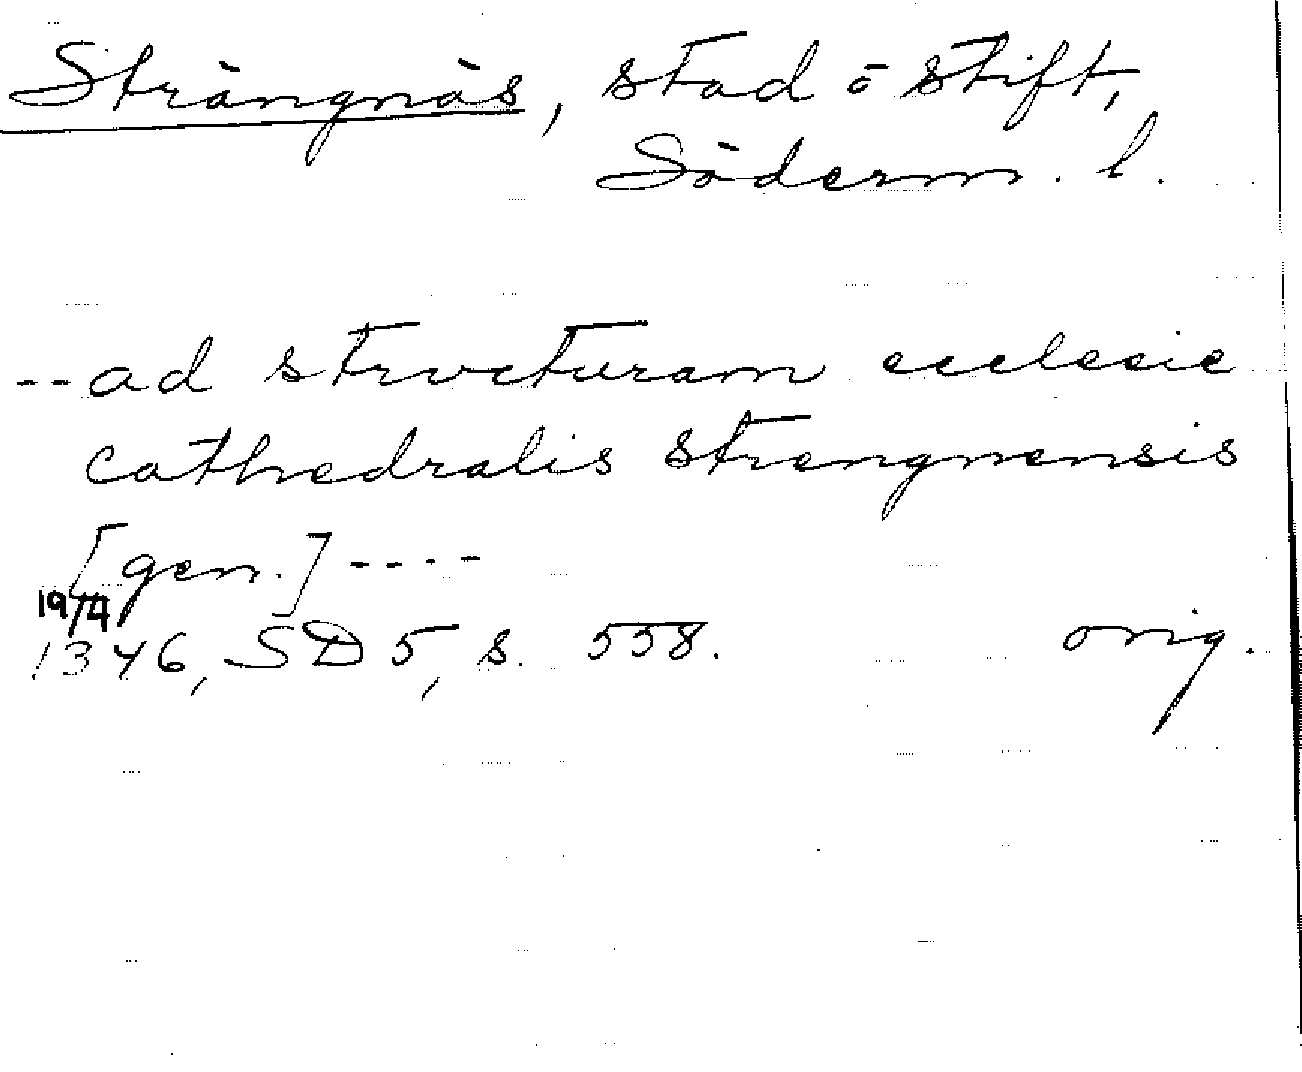 Strängnäs, stad o stift,
Söderm. l.
-- ad structuram ecclesie
cathedralis strengnensis
[gen.] ----
19/4
1346, SD 5, s. 558. orig.